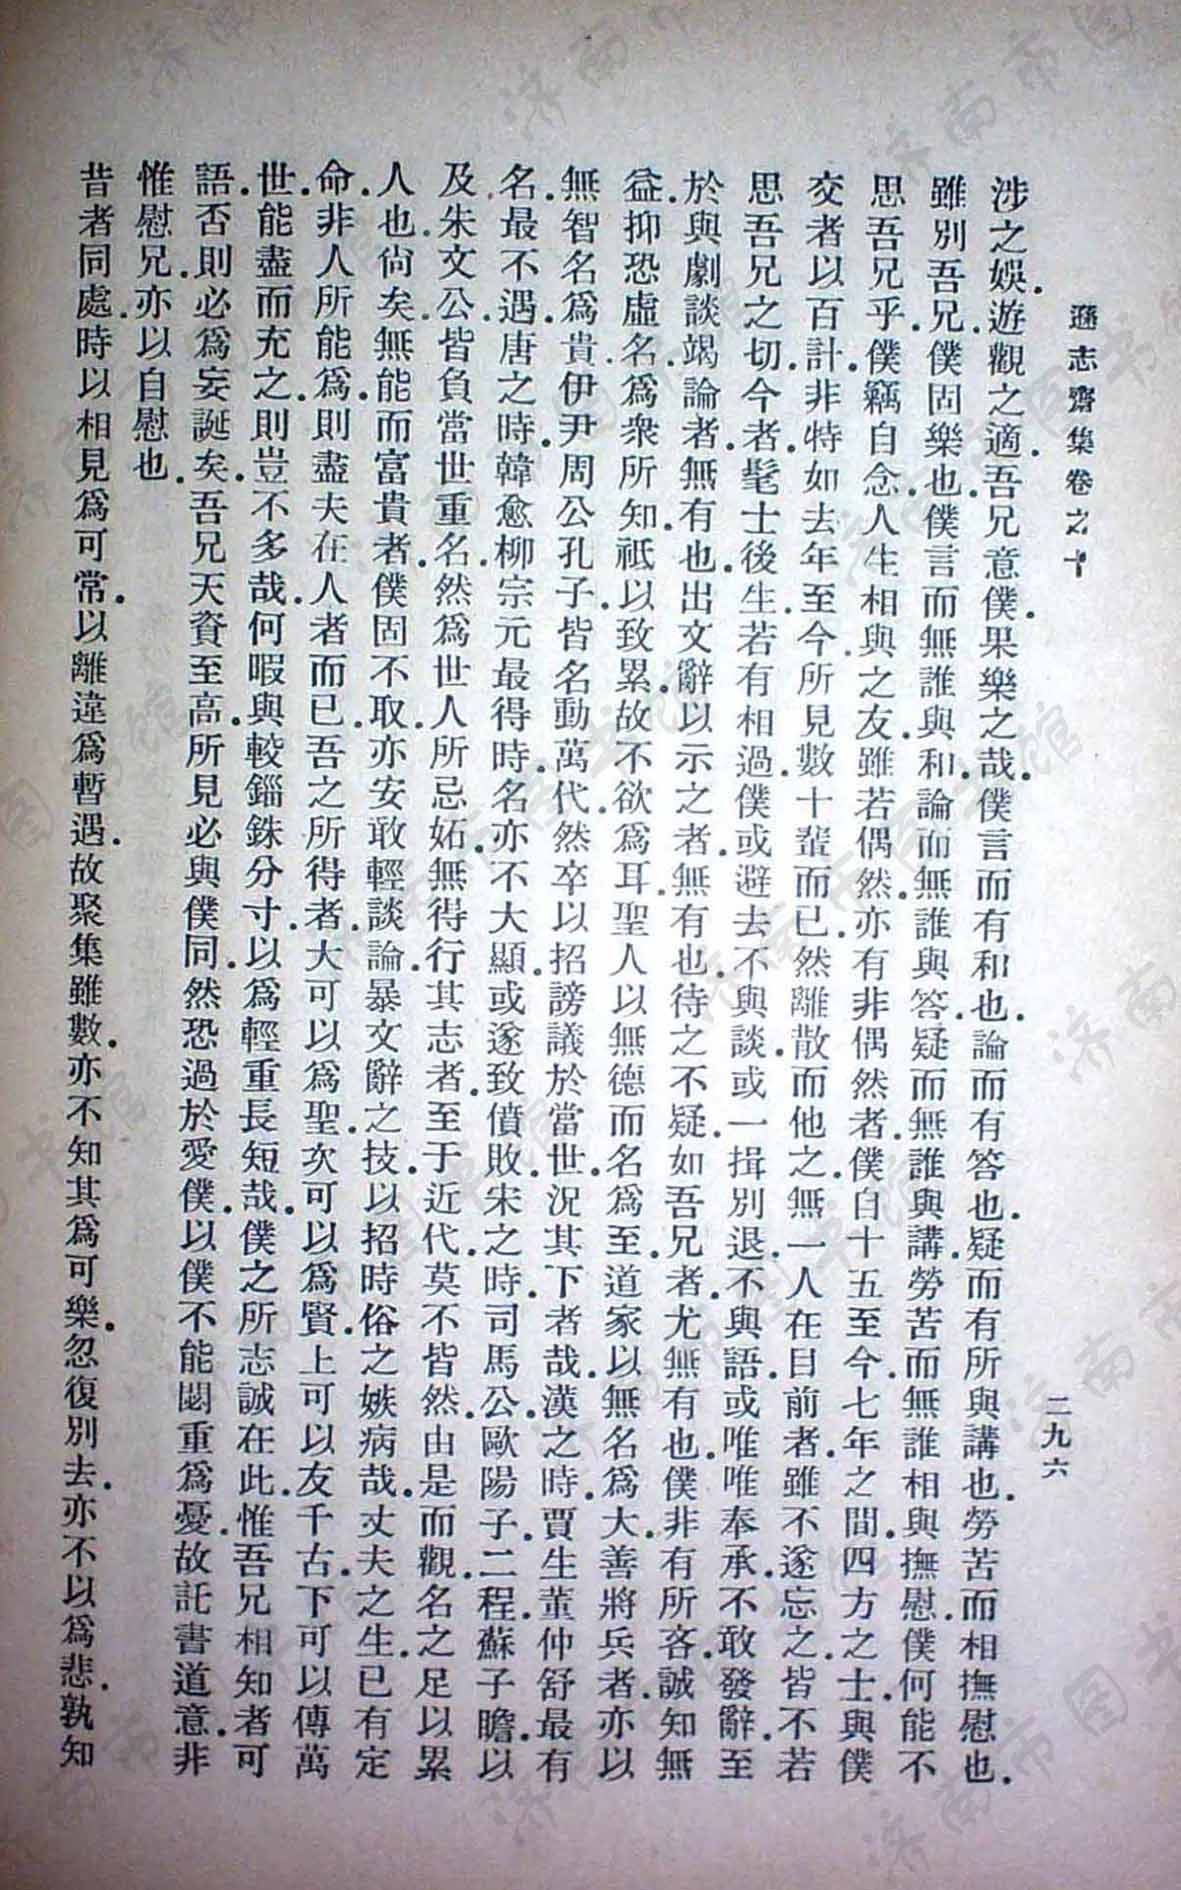 遜志齋集卷之十
二九六
涉之娛.遊觀之適.吾兄意僕.果樂之哉.僕言而有和也.論而有答也.疑而有所與講也.勞苦而相撫慰也.
雖別吾兄.僕固樂也.僕言而無誰與和.論而無誰與答.疑而無誰與講.勞苦而無誰相與撫慰.僕何能不
思吾兄乎.僕竊自念.人生相與之友.雖若偶然.亦有非偶然者.僕自十五至今.七年之間.四方之士.與僕
交者以百計.非特如去年至今.所見數十輩而已.然離散而他之.無一人在目前者.雖不遂忘之.皆不若
思吾兄之切.今者.髦士後生.若有相過.僕或避去不與談.或一揖別退.不與語.或唯唯奉承.不敢發辭.至
於與劇談竭論者.無有也.出文辭以示之者.無有也.待之不疑.如吾兄者.尤無有也.僕非有所吝.誠知無
益.抑恐虛名.爲衆所知.祇以致累.故不欲爲耳.聖人以無德而名爲至.道家以無名爲大.善將兵者.亦以
無智名爲貴.伊尹周公孔子.皆名動萬代.然卒以招謗議於當世.況其下者哉.漢之時.賈生董仲舒.最有
名.最不遇.唐之時.韓愈柳宗元最得時名.亦不大顯.或遂致僨敗.宋之時.司馬公.歐陽子.二程.蘇子瞻.以
及朱文公.皆負當世重名.然爲世人所忌妬.無得行其志者.至于近代.莫不皆然.由是而觀.名之足以累
人也尙矣.無能而富貴者.僕固不取.亦安敢輕談論.暴文辭之技.以招時俗之嫉病哉.丈夫之生.已有定
命.非人所能爲.則盡夫在人者而已.吾之所得者.大可以爲聖.次可以爲賢.上可以友千古.下可以傳萬
世.能盡而充之.則豈不多哉.何暇與較錙銖分寸.以爲輕重長短哉.僕之所志誠在此.惟吾兄相知者可
語.否則必爲妄誕矣.吾兄天資至高.所見必與僕同.然恐過於愛僕.以僕不能閟重爲憂.故託書道意.非
惟慰兄.亦以自慰也.
昔者同處.時以相見爲可常.以離違爲暫遇.故聚集雖數.亦不知其爲可樂.忽復別去.亦不以爲悲.孰知